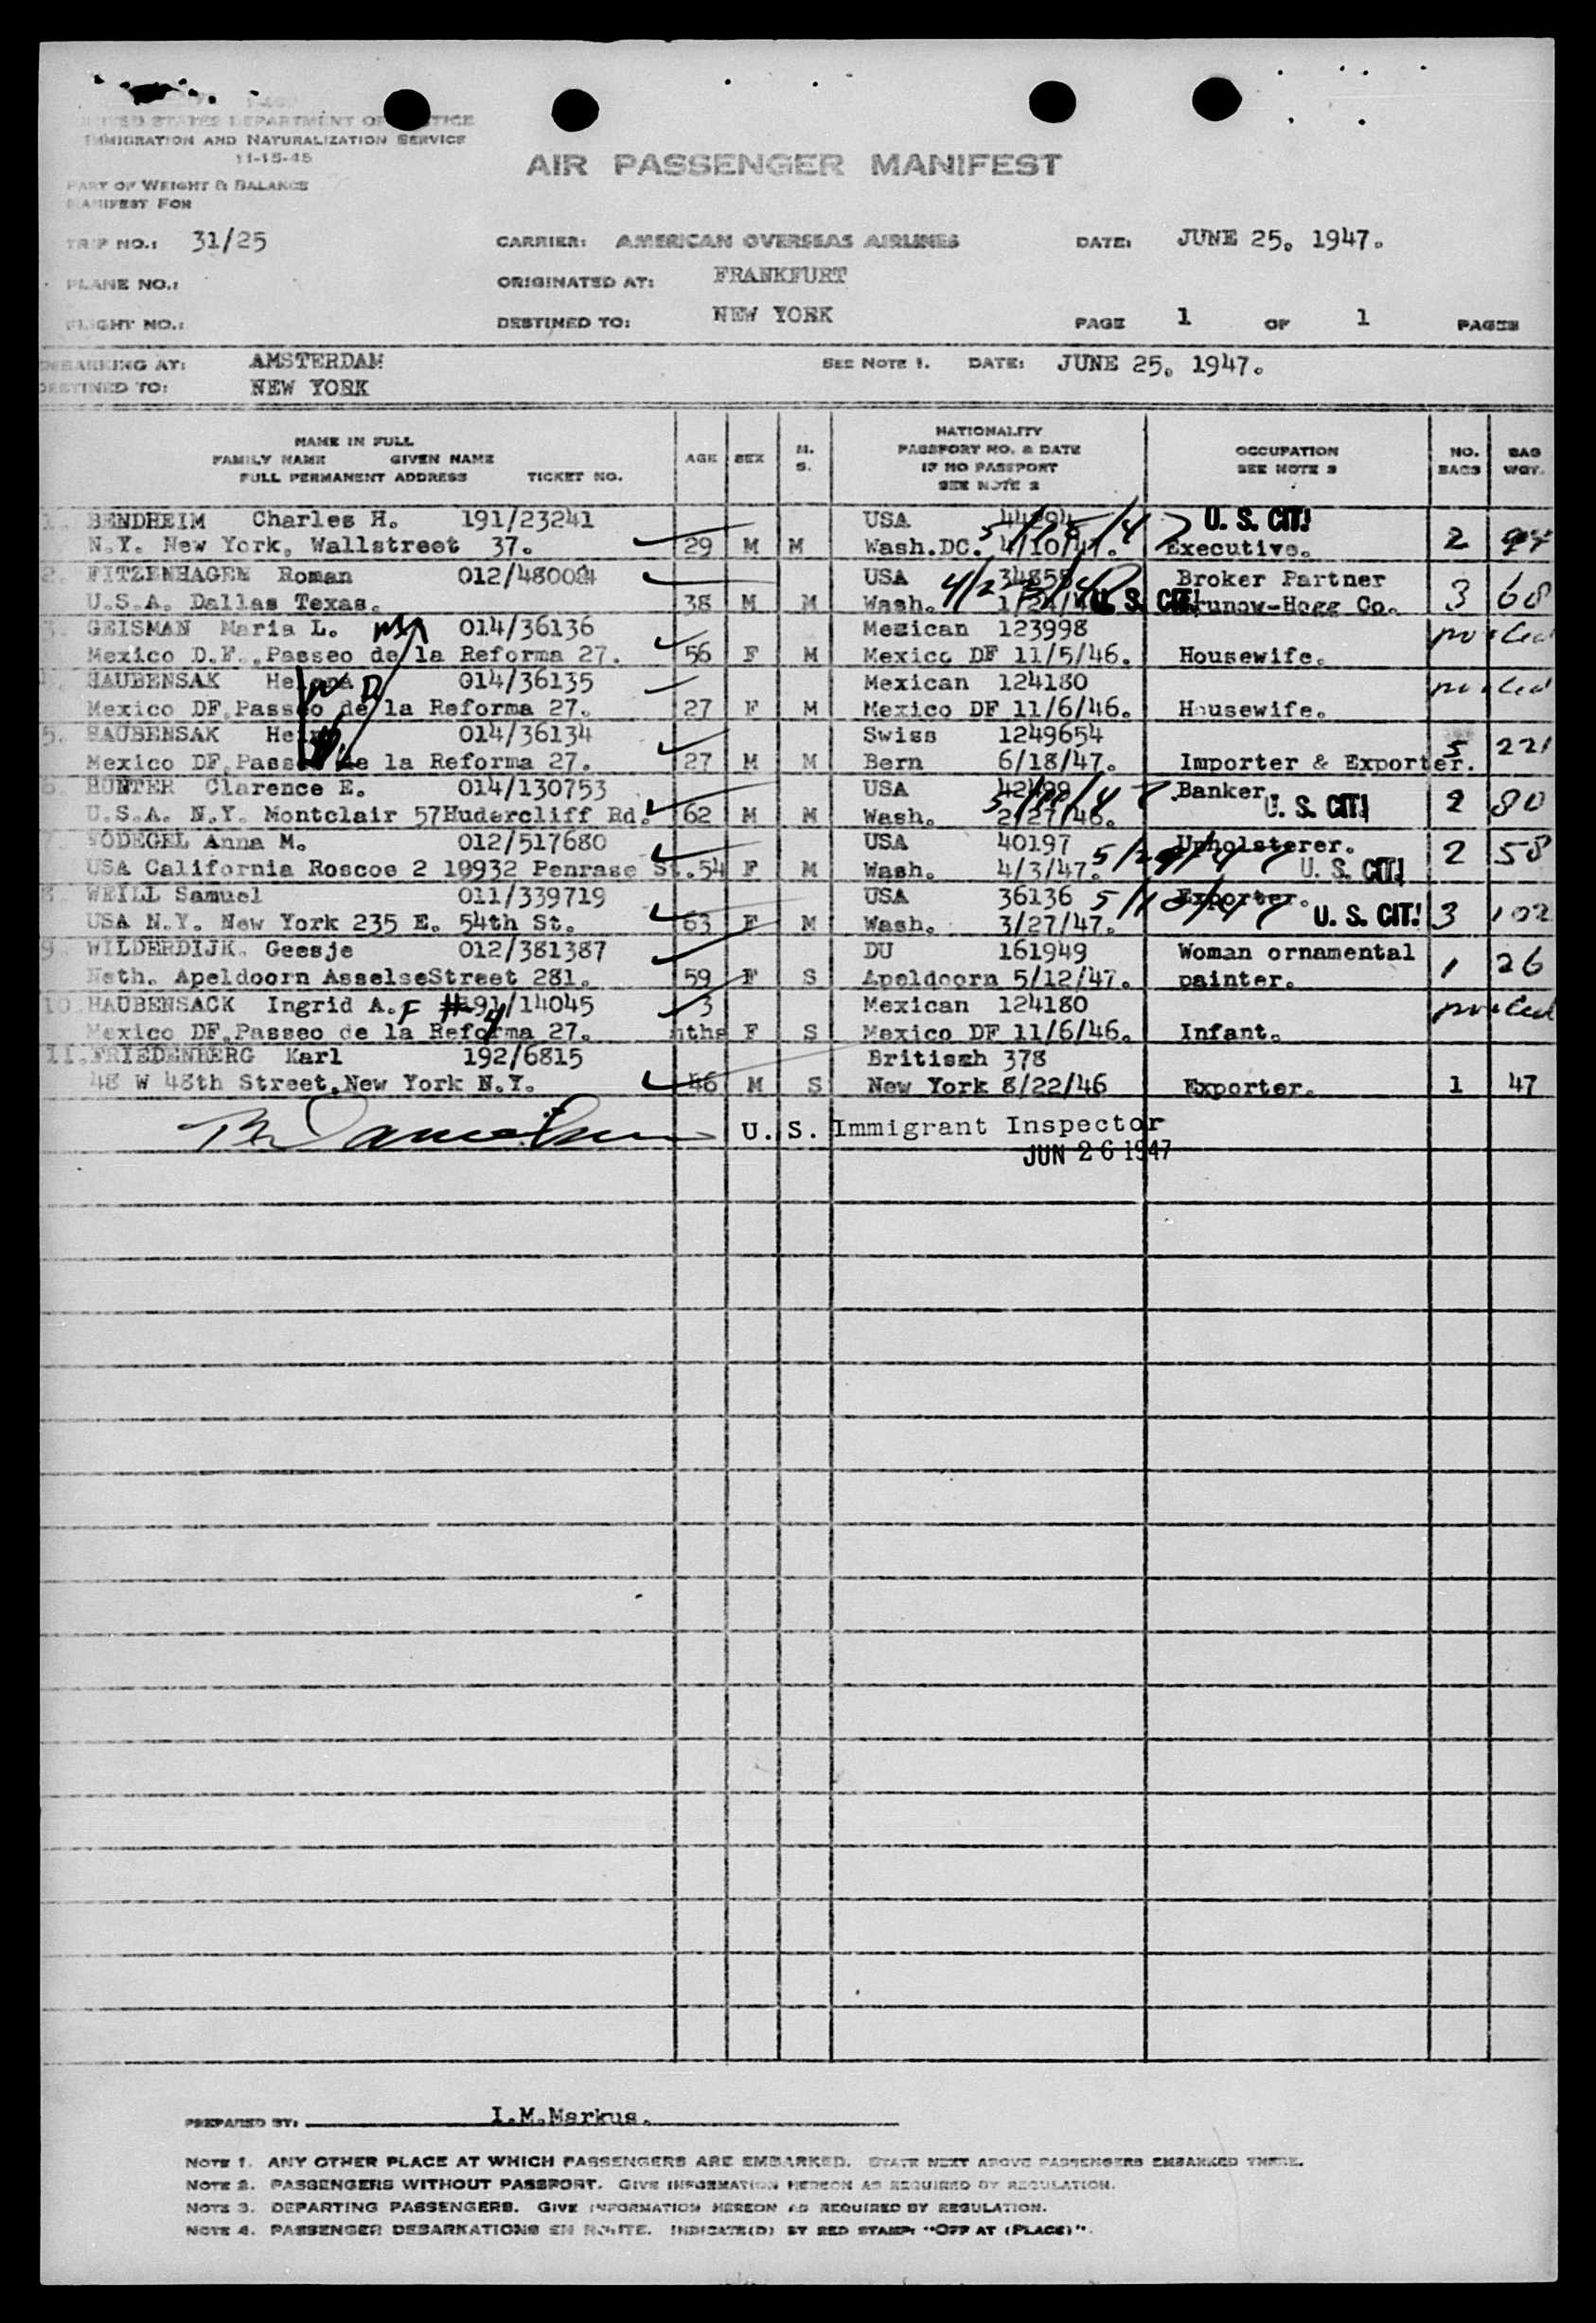 UNITED STATES DEPARTMENT OF JUSTICE
IMMIGRATION AND NATURALIZATION SERVICE
11-15-45
AIR PASSENGER MANIFEST
PART OF WEIGHT & BALANCE
MANIFEST FOR
TRIP NO.: 31/25 CARRIER: AMERICAN OVERSEAS AIRLINES DATE: JUNE 25. 1947.
PLANE NO.: ORIGINATED AT: FRANKFURT
FLIGHT NO.: DESTINED TO: NEW YORK PAGE 1 OF 1 PAGES
EMBARKING AT: AMSTERDAM SEE NOTE 1. DATE: JUNE 25. 1947.
DESTINED TO: NEW YORK
NAME IN FULL
FAMILY NAME GIVEN NAME
FULL PERMANENT ADDRESS TICKET NO.
AGE SEX M. S.
NATIONALITY
PASSPORT NO. & DATE
IF NO PASSPORT
SEE NOTE 2
OCCUPATION
SEE NOTE 3
NO. BAGS
BAG WGT.
1. BENDHEIM Charles H. 191/23241 USA 44294 U. S. CIT!
N.Y. New York, Wallstreet 37. 29 M M Wash.DC. 4/10/47. Executive. 2
2. FITZENHAGEN Roman 012/48002 USA 34855 Broker Partner
U.S.A. Dallas Texas. 38 M M Wash. U. S. CIT! Grunow-Hogg Co. 3 68
3. GEISMAN Maria L. 014/36136 Mexican 123998 pooled
Mexico D.F..Passeo de la Reforma 27. 56 F M Mexico DF 11/5/46. Housewife.
4. HAUBENSAK Helena 014/36135 Mexican 124180 pooled
Mexico DF.Passeo de la Reforma 27. 27 F M Mexico DF 11/6/46. Housewife.
5. HAUBENSAK 014/36134 Swiss 1249654
Mexico DF.Passeo de la Reforma 27. 27 M M Bern 6/18/47. Importer & Exporter. 5 221
6. HUNTER Clarence E. 014/130753 USA 42499 Banker. U. S. CIT!
U.S.A. N.Y. Montclair 57Hudercliff Rd. 62 M M Wash. 2/27/46. 2 80
7. VODEGEL Anna M. 012/517680 USA 40197 Upholsterer.
USA California Roscoe 2 10932 Penrase St. 54 F M Wash. 4/3/47. 5/29/47 U. S. CIT! 2 58
8. WEILL Samuel 011/339719 USA 36136 Exporter.
USA N.Y. New York 235 E. 54th St. 63 F M Wash. 3/27/47. U. S. CIT! 3 102
9. WILDERDIJK. Geesje 012/381387 DU 161949 Woman ornamental
Neth. Apeldoorn AsselseStreet 281. 59 F S Apeldoorn 5/12/47. painter. 1 26
10. HAUBENSACK Ingrid A. F #191/14045 3 Mexican 124180 pooled
Mexico DF.Passeo de la Reforma 27. nths F S Mexico DF 11/6/46. Infant.
11. FRIEDENBERG Karl 192/6815 Britissh 378
48 W 48th Street.New York N.Y. 46 M S New York 8/22/46 Exporter. 1 47
U. S. Immigrant Inspector
JUN 26 1947
PREPARED BY: I.M.Markus.
NOTE 1. ANY OTHER PLACE AT WHICH PASSENGERS ARE EMBARKED. STATE NEXT ABOVE PASSENGERS EMBARKED THERE.
NOTE 2. PASSENGERS WITHOUT PASSPORT. GIVE INFORMATION HEREON AS REQUIRED BY REGULATION.
NOTE 3. DEPARTING PASSENGERS. GIVE INFORMATION HEREON AS REQUIRED BY REGULATION.
NOTE 4. PASSENGER DEBARKATIONS EN ROUTE. INDICATE(D) BY RED STAMP: "OFF AT (PLACE)".